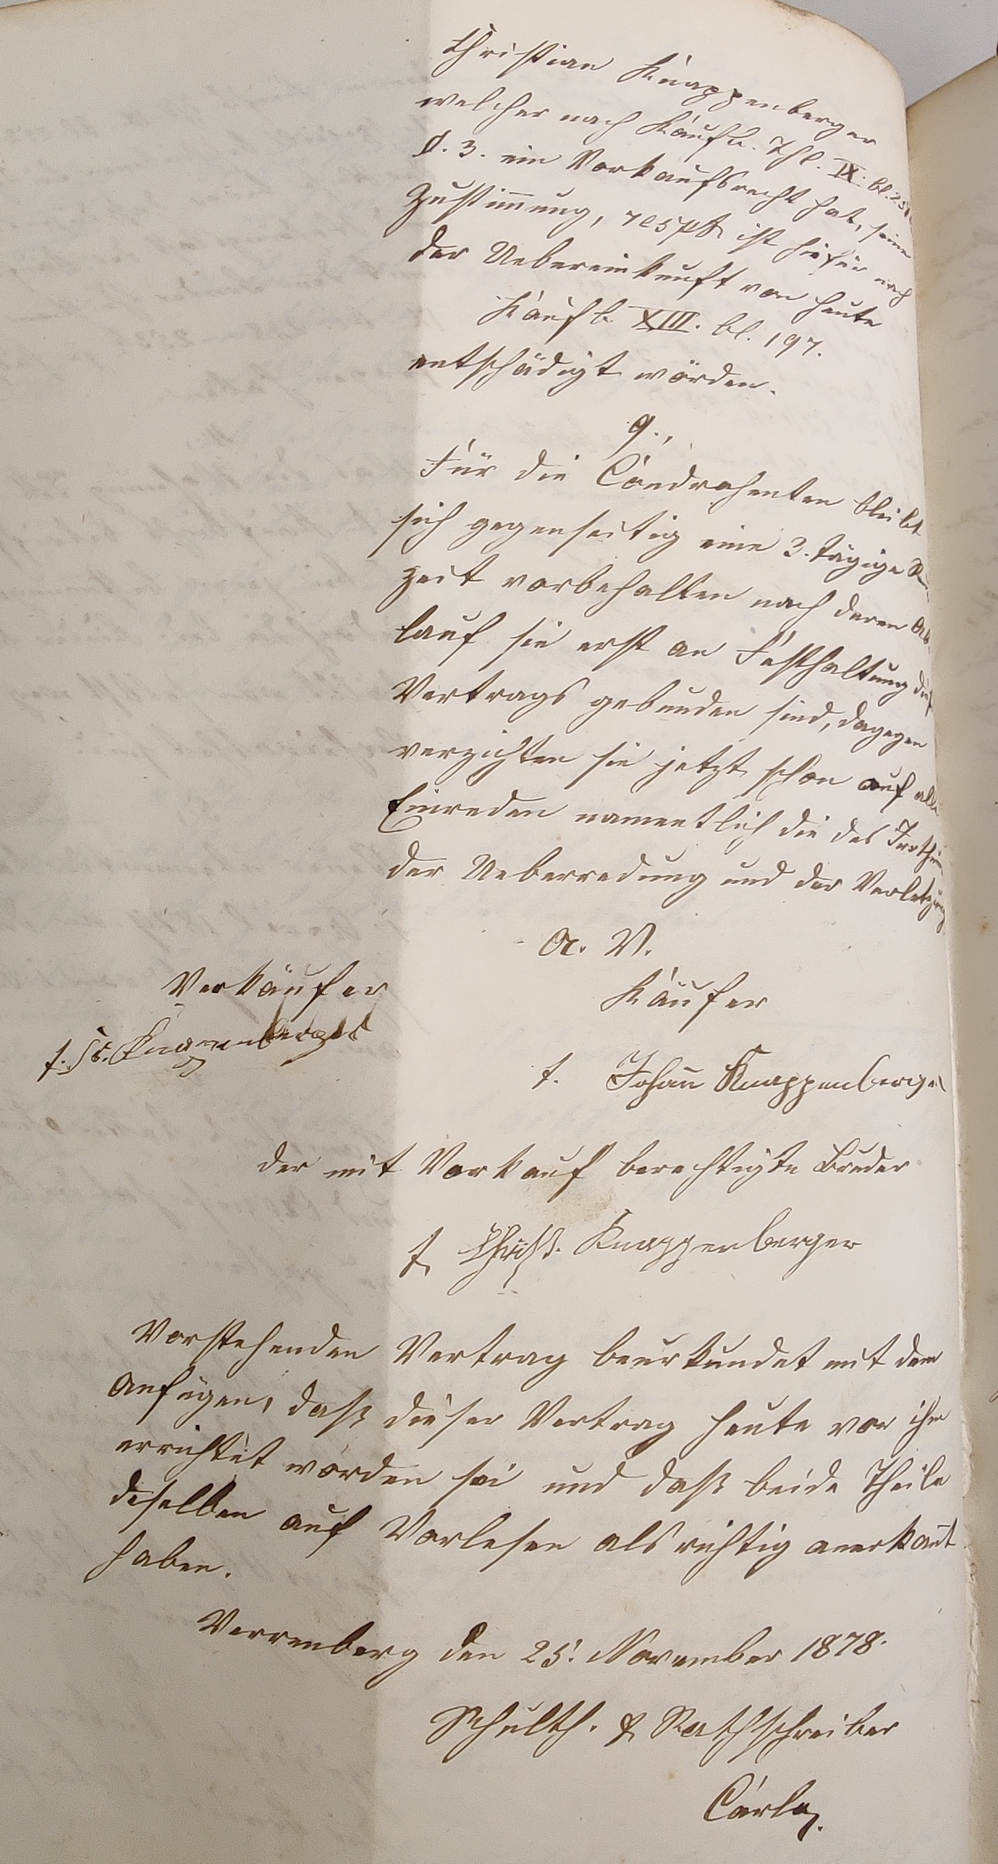 Christian Knappenberger
welcher nach Kaufb. Thl. IX. bl.
§. 3. ein Vorkaufsrecht hat, seine
Zustimmung, respt. ist hiefür nach
der Uebereinkunft von heute
Kaufb. XIII. bl. 197.
entschädigt worden.
9.,
Für die Condrahenten bleibt
sich gegenseitig eine 3. tägige
zeit vorbehalten nach deren Ab
lauf sie erst an Festhaltung dies
Vertrags gebunden sind, dagegen
verzichten sie jetzt schon auf alle
Einreden namentlich die des Irrthums
der Ueberredung und der Verletzung
A. V.
Verkäufer
Käufer
t. Knappenberger
t. Johann Knappenberger
der mit Vorkauf berechtigte Bruder
t. Christ. Knappenberger
Vorstehenden Vertrag beurkundet mit dem
Anfügen, daß dieser Vertrag heute vor ihm
errichtet worden sei und daß beide Theile
deselben auf Vorlesen als richtig anerkañt
haben.
Verrenberg den 25. November 1878.
Schulth. & Rathschreiber